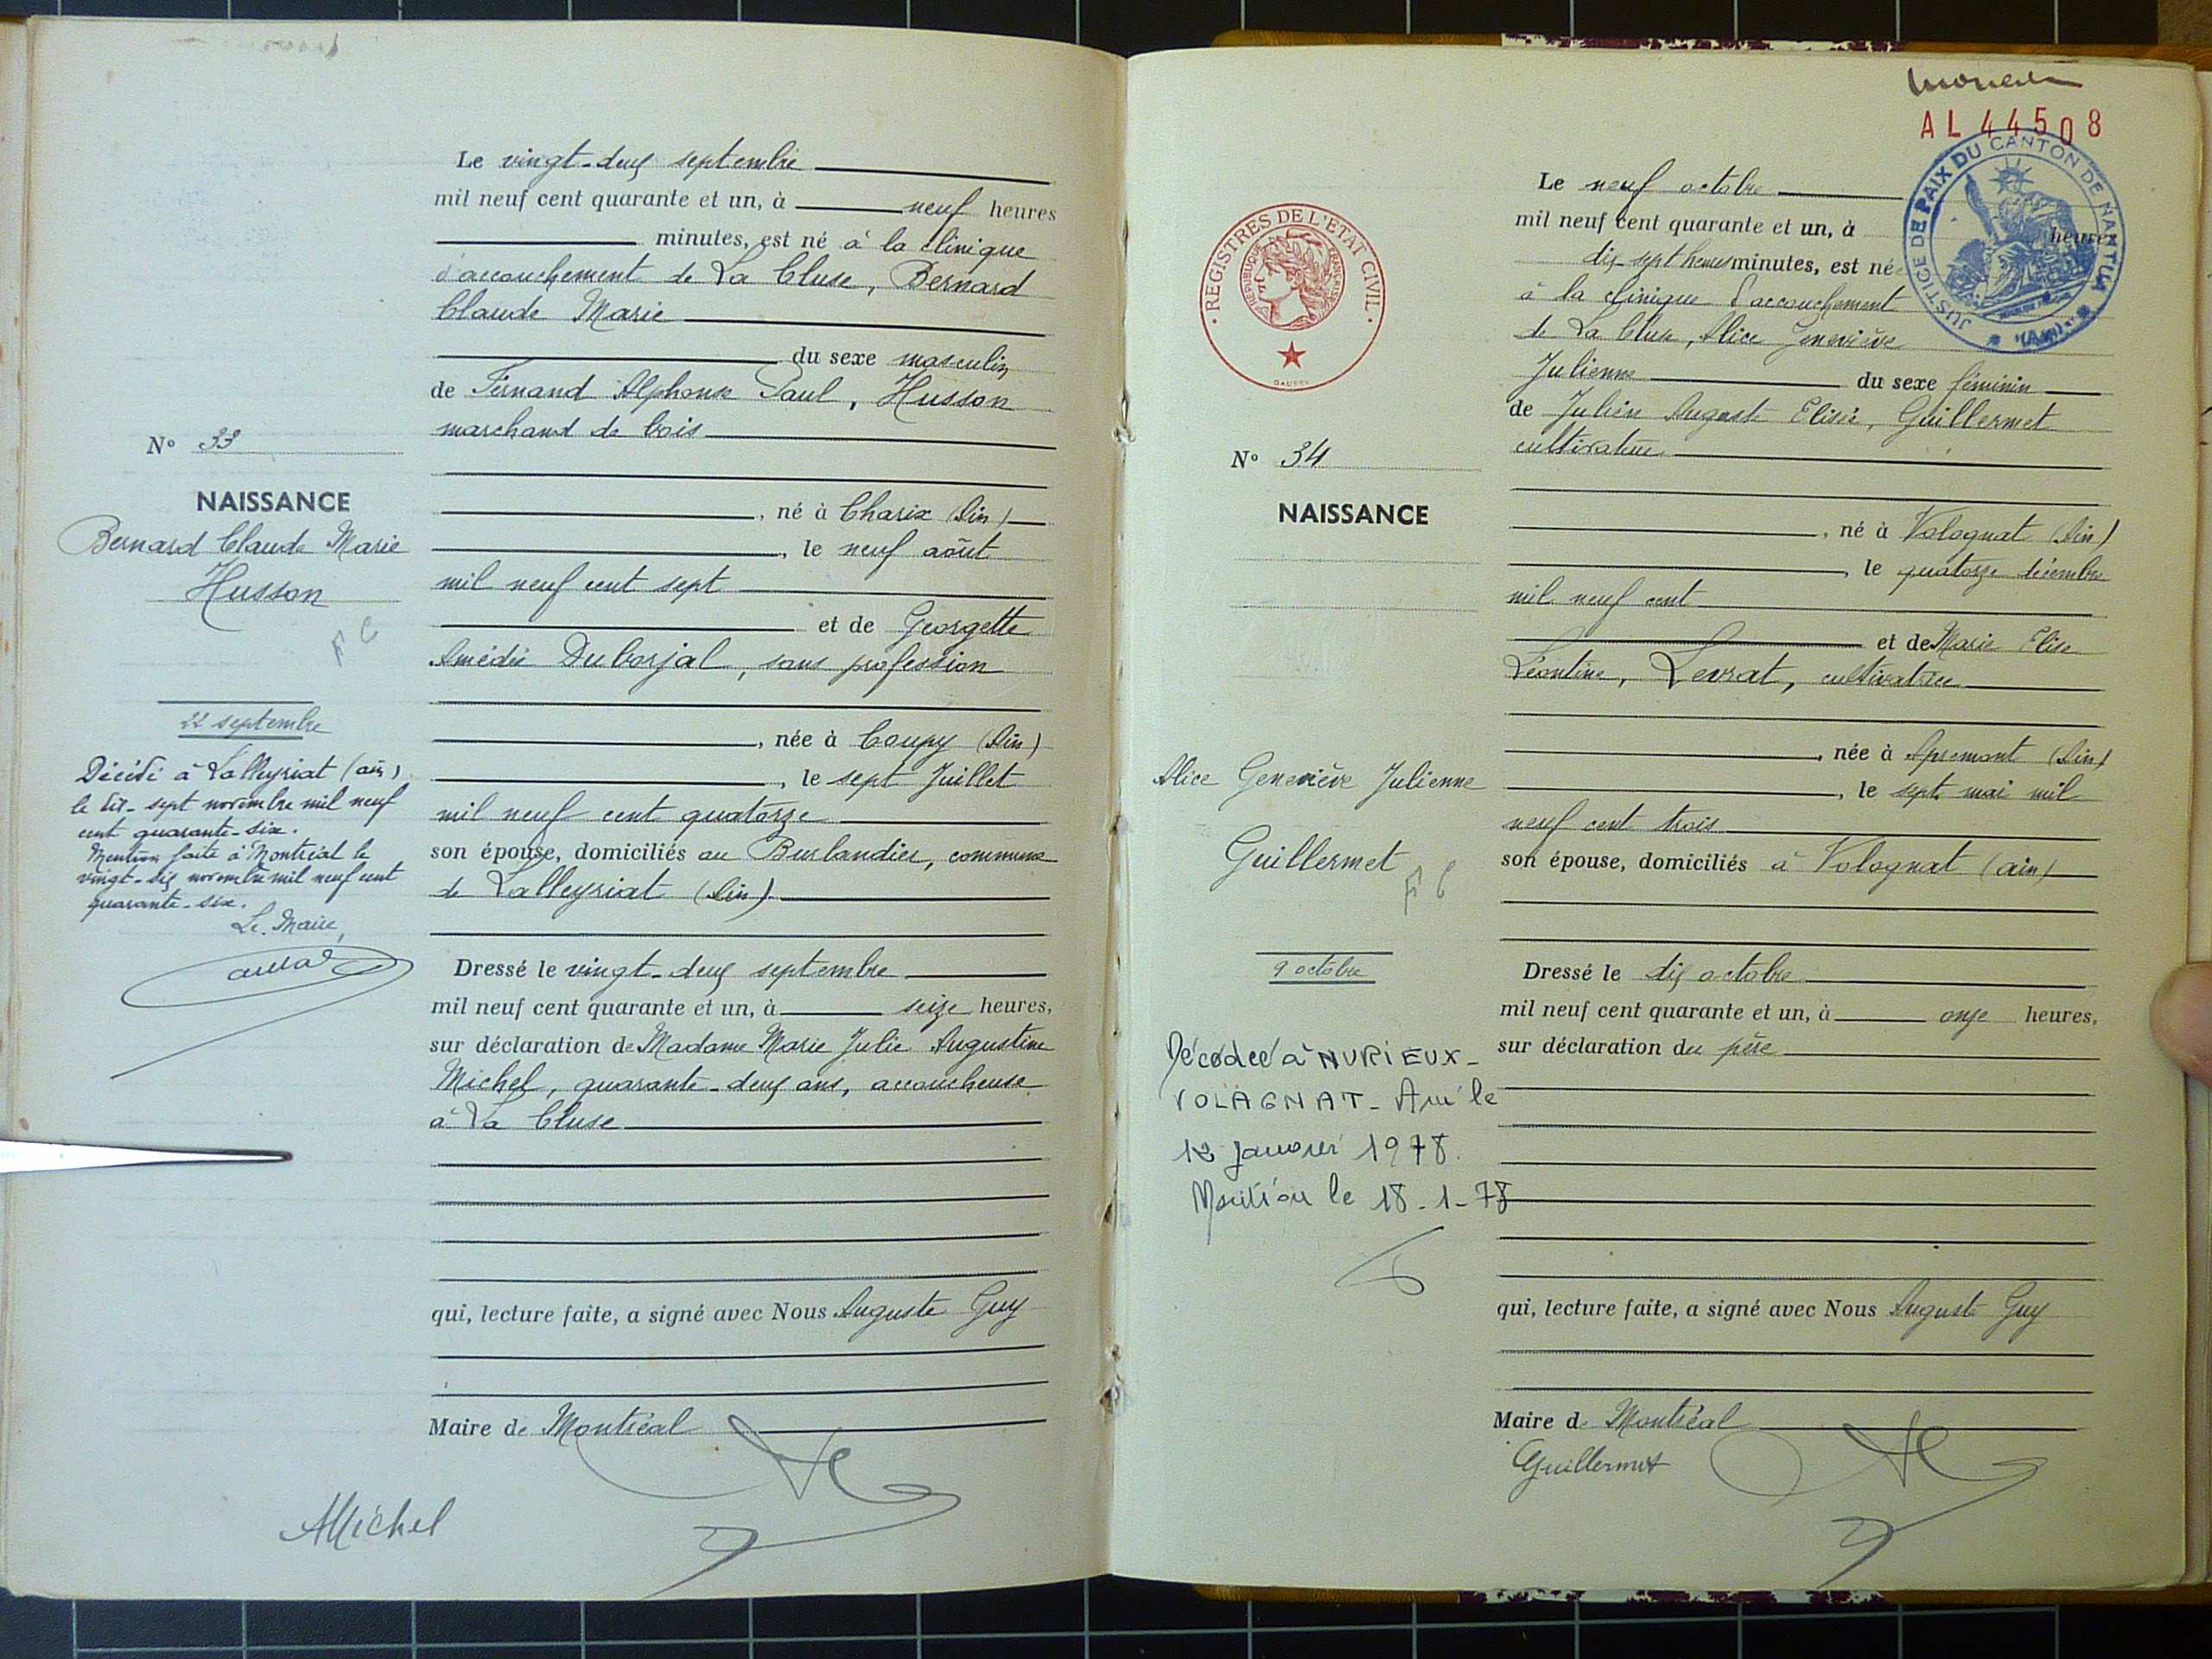 Le vingt-deux septembre
mil neuf cent quarante et un, à neuf heures
minutes, est né à la clinique
d'accouchement de La Cluse, Bernard
Claude Marie
du sexe masculin
de Fernand Alphonse Paul, Husson
marchand de bois
né à Charix (Ain)
, le neuf août
mil neuf cent sept
et de Georgette
Amédée Duborjal, sans profession
, née à Coupy (Ain)
, le sept Juillet
mil neuf cent quatorze
son épouse, domiciliés au Burlandier, commune
de Lalleyriat (Ain).
Dressé le vingt-deux septembre
mil neuf cent quarante et un, à seize heures,
sur déclaration de Madame Marie Julie Augustine
Michel, quarante-deux ans, accoucheuse
à La Cluse
qui, lecture faite, a signé avec Nous Auguste Guy
Maire de Montréal
AMichel
N° 33
NAISSANCE
Bernard Claude Marie
Husson
F C
22 septembre
Décédé à Lalleyriat (ain)
le dix-sept novembre mil neuf
cent quarante-six.
Mention faite à Montréal le
vingt-dix novembre mil neuf cent
quarante-six.
Le Maire,
AL 44508
JUSTICE DE PAIX DU CANTON DE NANTUA
(Ain)
REGISTRES DE L'ETAT CIVIL
REPUBLIQUE FRANÇAISE
Le neuf octobre
mil neuf cent quarante et un, à heures
dix-sept heures minutes, est né
à la clinique d'accouchement
de La Cluse, Alice Geneviève
Julienne du sexe féminin
de Julien August Elisée, Guillermet
cultivateur
, né à Volognat (Ain)
, le quatorze décembre
mil neuf cent
et de Marie Elise
Léontine, Levrat, cultivatrice
, née à Apremont (Ain)
, le sept mai mil
neuf cent trois
son épouse, domiciliés à Volognat (ain)
Dressé le dix octobre
mil neuf cent quarante et un, à onze heures,
sur déclaration du père
qui, lecture faite, a signé avec Nous Auguste Guy
Maire de Montréal
Guillermet
N° 34
NAISSANCE
Alice Geneviève Julienne
Guillermet
F C
9 octobre
Décédée à NURIEUX-
VOLAGNAT - Ain le
12 Janvier 1978.
Mention le 18-1-78